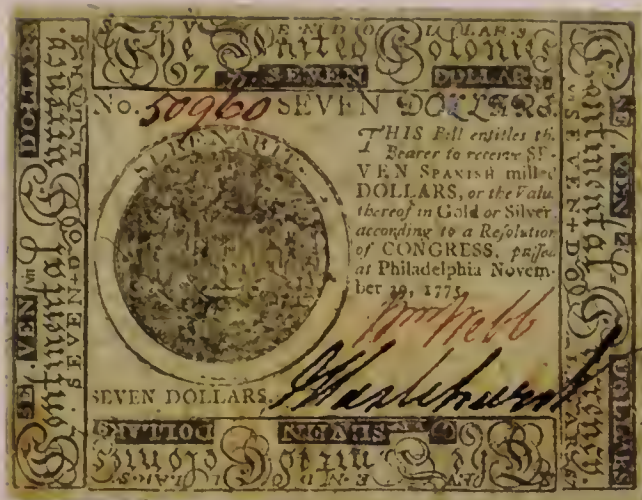 SEVEN DOLLARS
The United Colonies
SEVEN DOLLARS
No. 50960 SEVEN DOLLARS.
THIS Bill entitles the
Bearer to receive SE-
VEN SPANISH milled
DOLLARS, or the Value
thereof in Gold or Silver,
according to a Resolution
of CONGRESS, passed
at Philadelphia Novem-
ber 29, 1775.
SERENABIT.
Wm Webb
SEVEN DOLLARS.
J Hazlehurst
Continental Currency.
SEVEN DOLLARS
SE VEN VII DOLLARS
Continental Currency.
SEVEN DOLLARS
SE VEN DOLLARS
SEVEN DOLLARS
The United Colonies
SEVEN DOLLARS